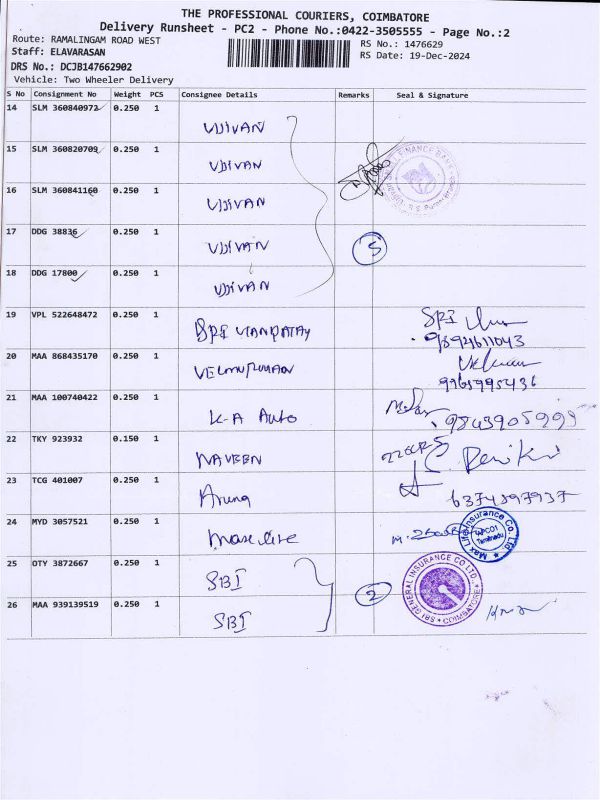 THE PROFESSIONAL COURIERS, COIMBATORE
Delivery Runsheet - PC2 - Phone No.:0422-3505555 - Page No.:2
Route: RAMALINGAM ROAD WEST
Staff: ELAVARASAN
DRS No.: DCJB147662902
Vehicle: Two Wheeler Delivery
RS No.: 1476629
RS Date: 19-Dec-2024
S No Consignment No Weight PCS Consignee Details Remarks Seal & Signature
14 SLM 360840972 0.250 1 UJIVAN
15 SLM 360820709 0.250 1 UJIVAN
16 SLM 360841160 0.250 1 UJIVAN
17 DDG 38836 0.250 1 UJIVAN 5
18 DDG 17800 0.250 1 UJIVAN
19 VPL 522648472 0.250 1 SRI SRI
9894611043
20 MAA 868435170 0.250 1 VELMURUGAN
9965995436
21 MAA 100740422 0.250 1 K-A Auto 9843905999
22 TKY 923932 0.150 1 NAVEEN
23 TCG 401007 0.250 1 Aruna 6374897937
24 MYD 3057521 0.250 1 Max life Max Life Insurance Co. Ltd. Tamilnadu
25 OTY 3872667 0.250 1 SBI 2 SBI GENERAL INSURANCE CO LTD. COIMBATORE
26 MAA 939139519 0.250 1 SBI